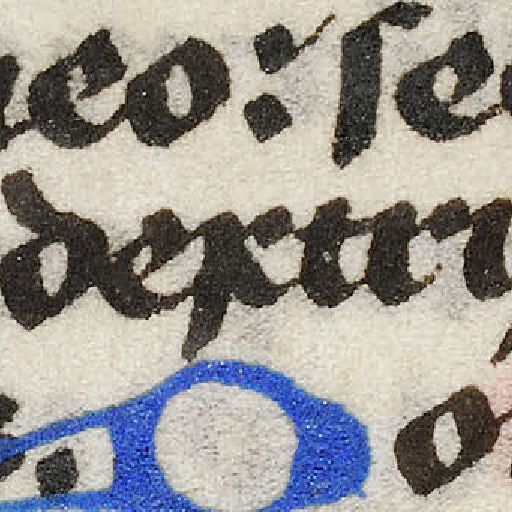 eo: ſe
dextri
. o